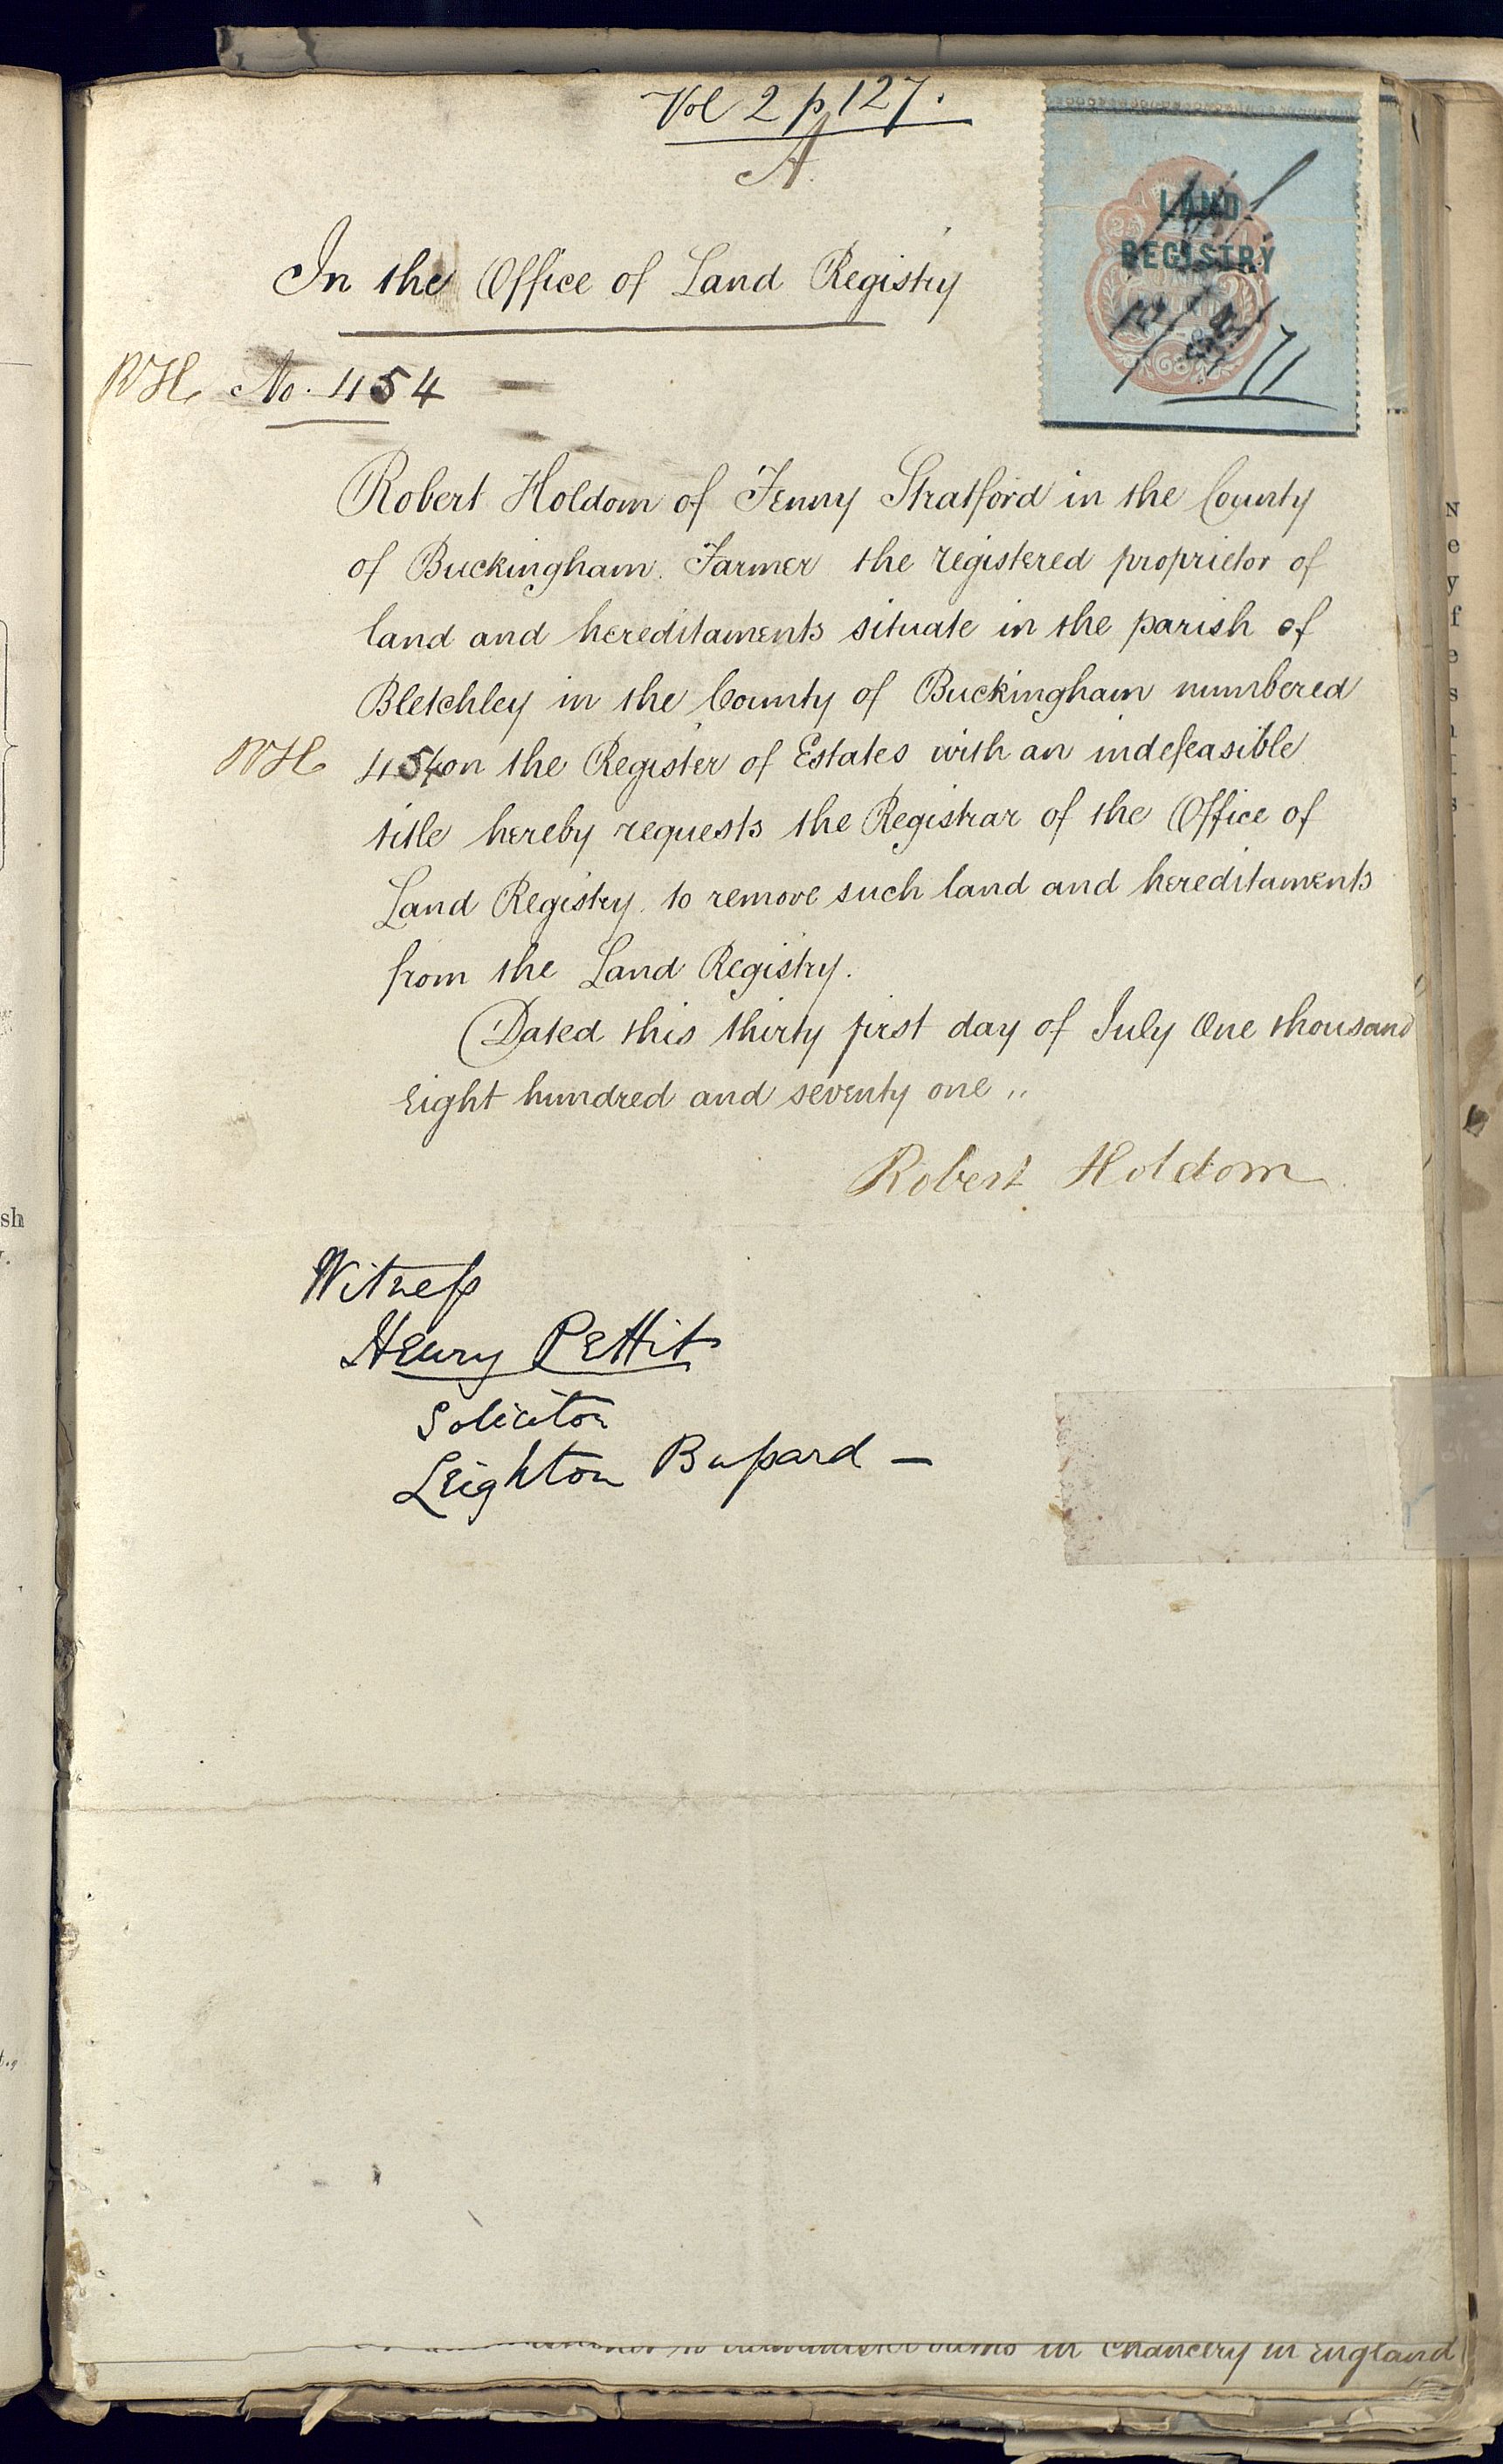 Vol 2 p 127.
A.
LAND
REGISTRY
In the Office of Land Registry
RH No. 454
Robert Holdom of Fenny Stratford in the County
of Buckingham. Farmer the registered proprietor of
land and hereditaments situate in the parish of
Bletchley in the County of Buckingham numbered
RH 454 on the Register of Estates with an indefeasible
title hereby requests the Registrar of the Office of
Land Registry to remove such land and hereditaments
from the Land Registry.
Dated this thirty first day of July One thousand
Eight hundred and seventy one ..
Robert Holdom
Witneſs
Henry Pettit
Solicitor
Leighton Buſsard —
in Chancery in England